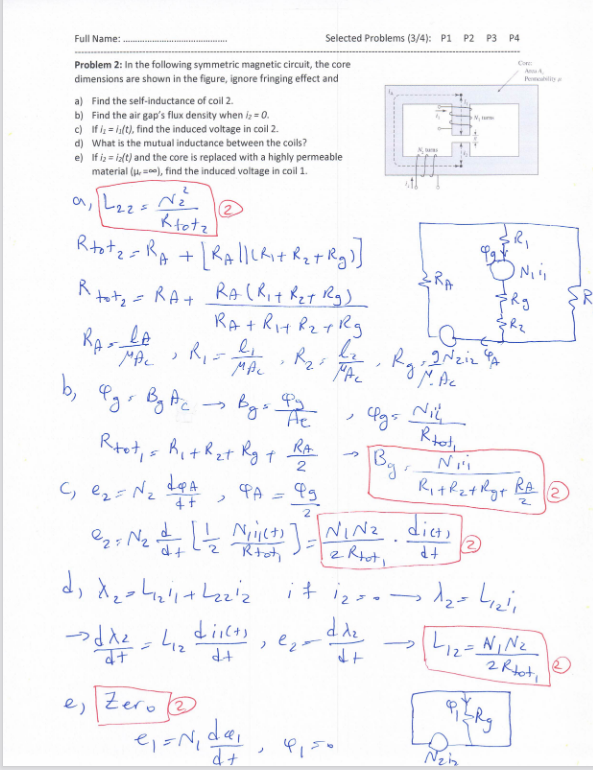 Full Name: ................................
Selected Problems (3/4): P1 P2 P3 P4
Problem 2: In the following symmetric magnetic circuit, the core
dimensions are shown in the figure, ignore fringing effect and
a) Find the self-inductance of coil 2.
b) Find the air gap's flux density when i₂ = 0.
c) If i₁ = i₁(t), find the induced voltage in coil 2.
d) What is the mutual inductance between the coils?
e) If i₂ = i₂(t) and the core is replaced with a highly permeable
material (μᵣ =∞), find the induced voltage in coil 1.
Core:
Area Ac
Permeability μ
N₁ turns
N₂ turns
a, L₂₂ = N₂² / Rtot₂ ②
Rtot₂ = RA + [RA || (R₁ + R₂ + Rg)]
Rtot₂ = RA + RA (R₁ + R₂ + Rg) / RA + R₁ + R₂ + Rg
RA = lA / μAc , R₁ = l₁ / μAc , R₂ = l₂ / μAc , Rg = g / μ₀ Ac
R₁
φg
N₁i₁
RA
Rg
R₂
R
N₂i₂
φA
b, φg = Bg Ac → Bg = φg / Ac , φg = N₁i₁ / Rtot₁
Rtot₁ = R₁ + R₂ + Rg + RA / 2 → Bg = N₁i₁ / R₁ + R₂ + Rg + RA / 2 ②
c, e₂ = N₂ dφA / dt , φA = φg / 2
e₂ = N₂ d / dt [ 1 / 2 N₁i₁(t) / Rtot₁ ] = N₁N₂ / 2 Rtot₁ · di(t) / dt ②
d, λ₂ = L₁₂i₁ + L₂₂i₂ if i₂ = 0 → λ₂ = L₁₂i₁
→ dλ₂ / dt = L₁₂ di₁(t) / dt , e₂ = dλ₂ / dt → L₁₂ = N₁N₂ / 2 Rtot₁ ②
e, Zero ②
e₁ = N₁ dφ₁ / dt , φ₁ = 0
φ₁
Rg
N₂i₂